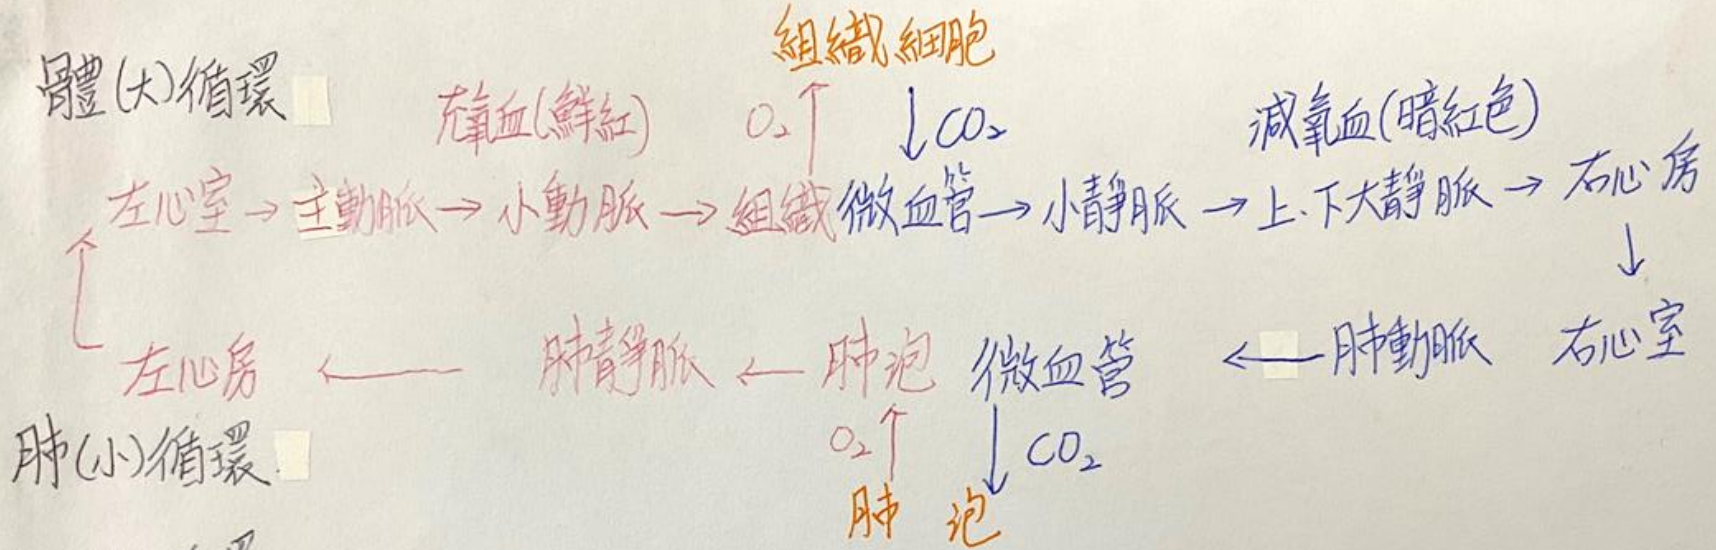 組織細胞
體(大)循環
充氧血(鮮紅) O₂↑ ↓CO₂ 減氧血(暗紅色)
左心室→主動脈→小動脈→組織微血管→小靜脈→上.下大靜脈→右心房
↑ ↓
左心房 ← 肺靜脈 ← 肺泡 微血管 ← 肺動脈 右心室
肺(小)循環 O₂↑ ↓CO₂
肺泡